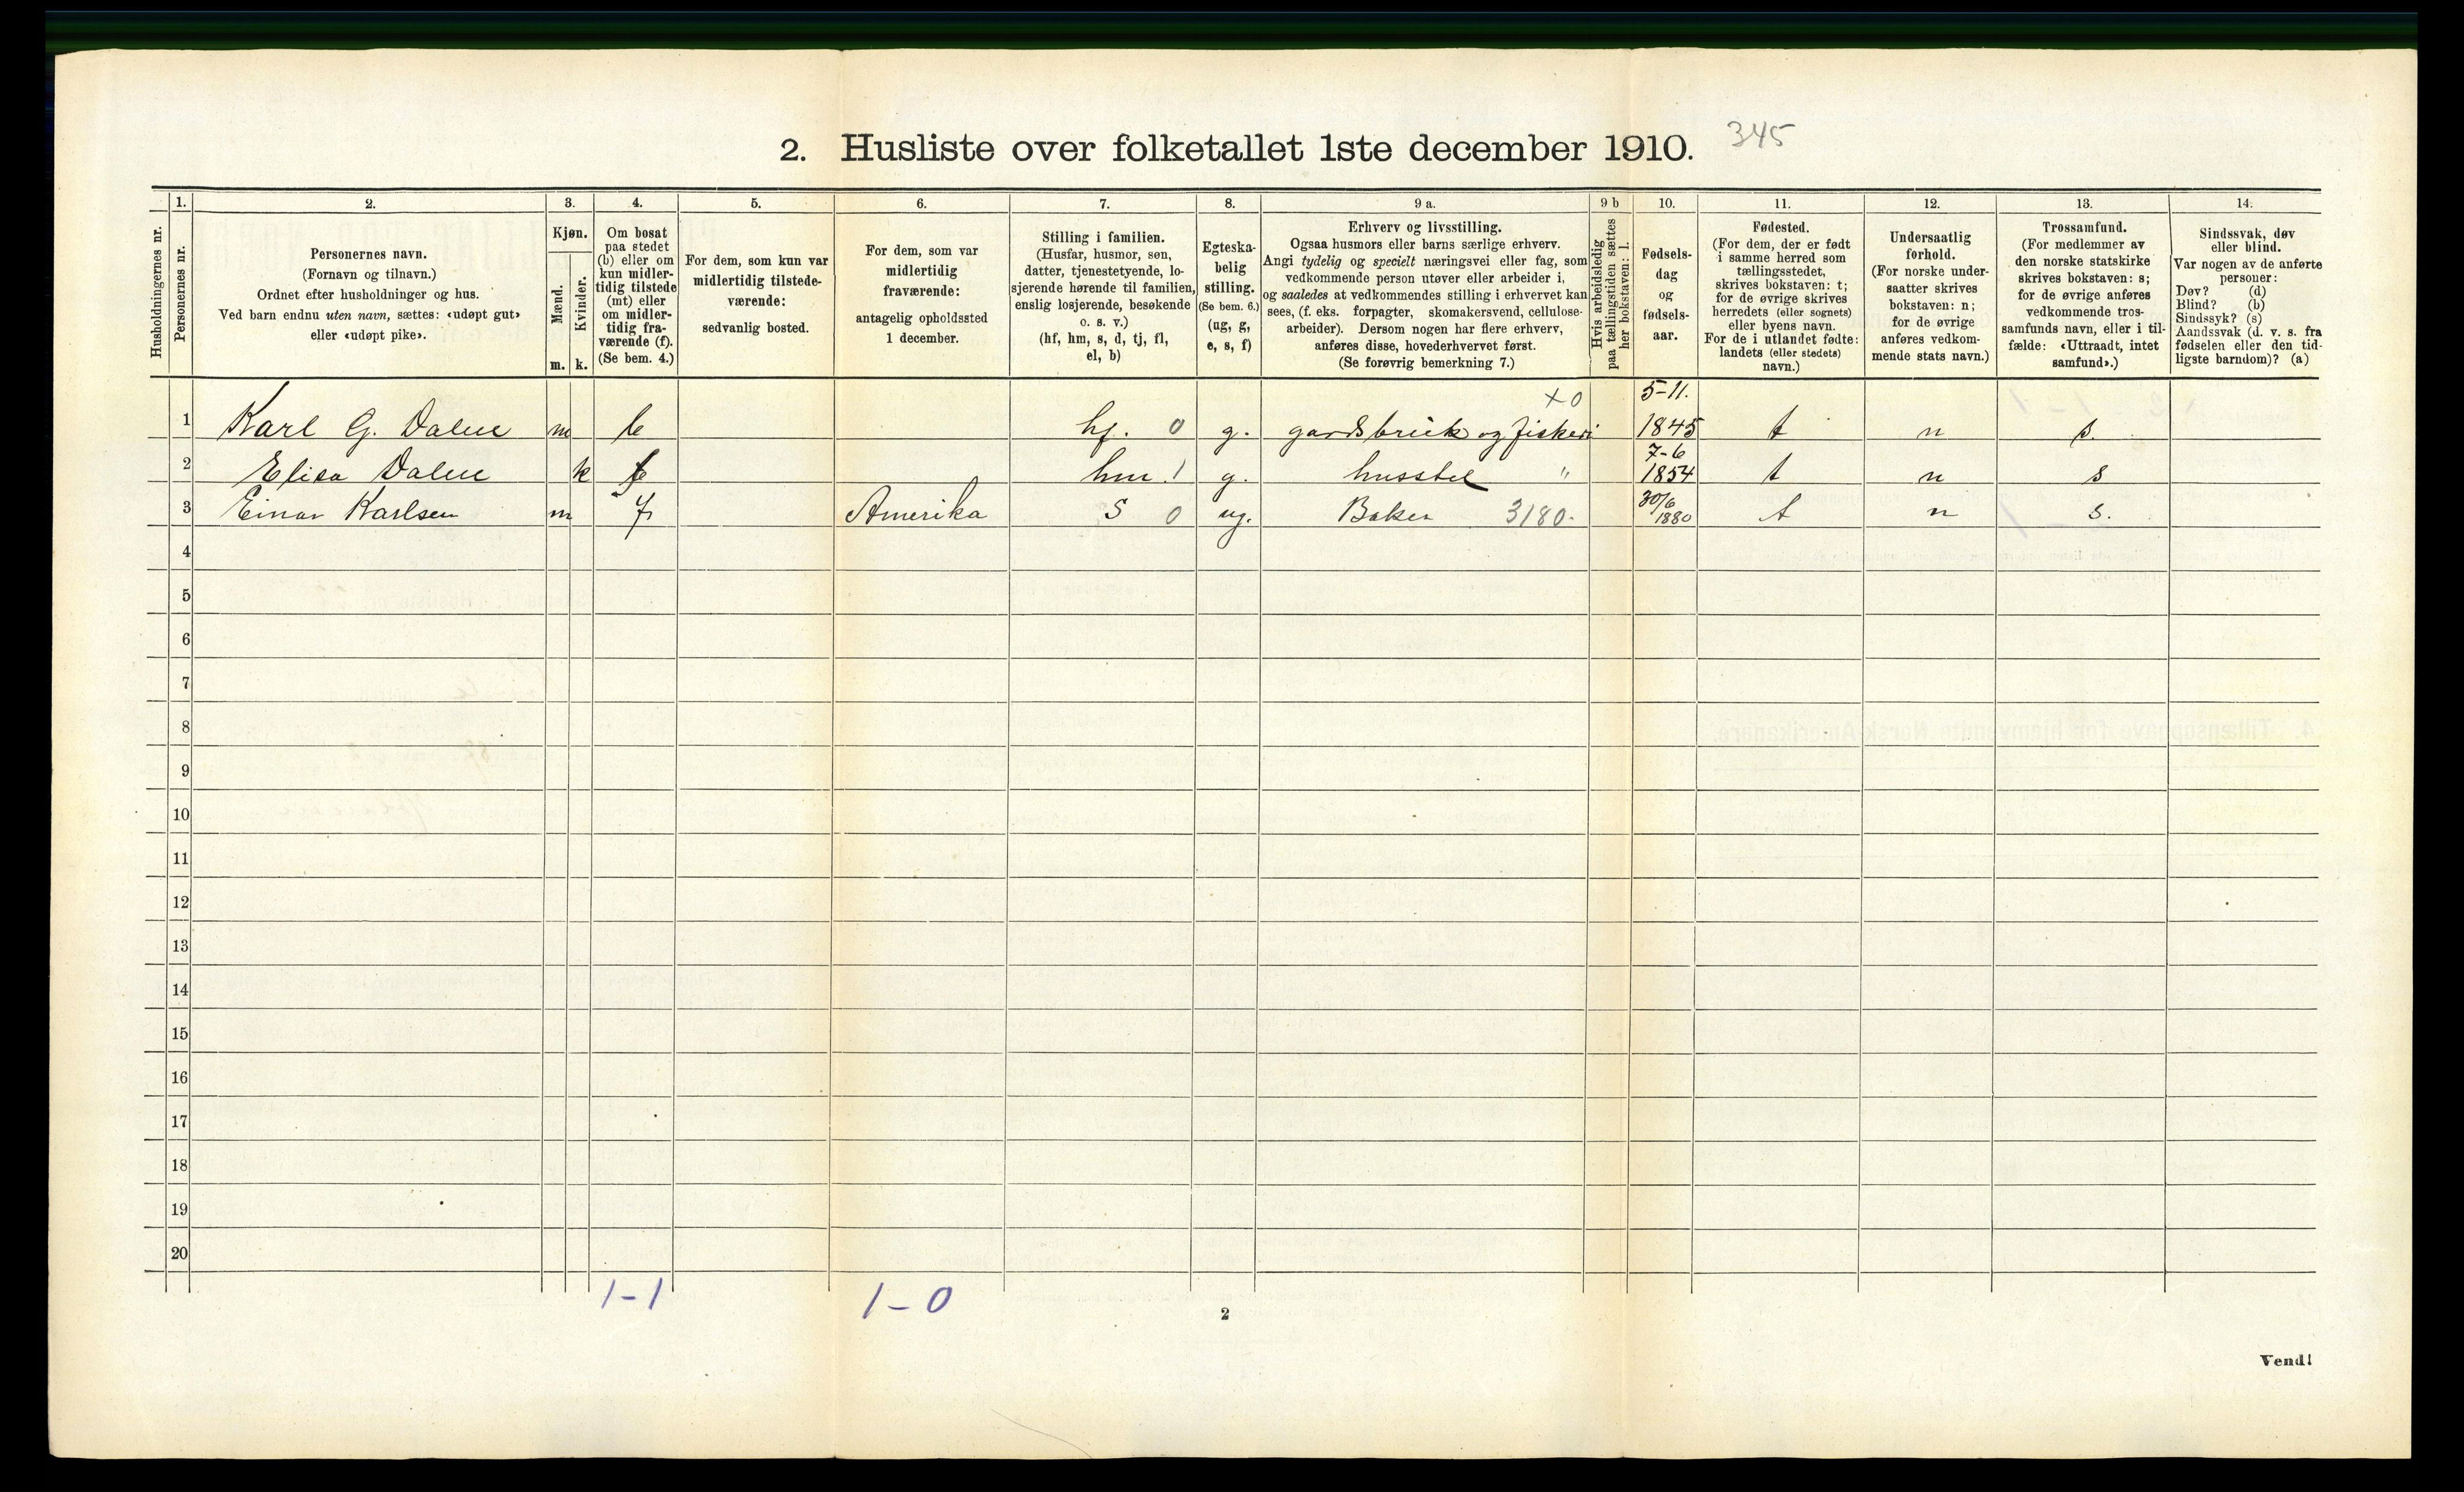 2. Husliste over folketallet 1ste december 1910. 345
1. 2. 3. 4. 5. 6. 7. 8. 9 a. 9 b 10. 11. 12. 13. 14.
Husholdningernes nr.
Personernes nr.
Personernes navn.
(Fornavn og tilnavn.)
Ordnet efter husholdninger og hus.
Ved barn endnu uten navn, sættes: «udøpt gut»
eller «udøpt pike».
Kjøn.
Mænd.
Kvinder.
m. k.
Om bosat
paa stedet
(b) eller om
kun midler-
tidig tilstede
(mt) eller
om midler-
tidig fra-
værende (f).
(Se bem. 4.)
For dem, som kun var
midlertidig tilstede-
værende:
sedvanlig bosted.
For dem, som var
midlertidig
fraværende:
antagelig opholdssted
1 december.
Stilling i familien.
(Husfar, husmor, søn,
datter, tjenestetyende, lo-
sjerende hørende til familien,
enslig losjerende, besøkende
o. s. v.)
(hf, hm, s, d, tj, fl,
el, b)
Egteska-
belig
stilling.
(Se bem. 6.)
(ug, g,
e, s, f)
Erhverv og livsstilling.
Ogsaa husmors eller barns særlige erhverv.
Angi tydelig og specielt næringsvei eller fag, som
vedkommende person utøver eller arbeider i,
og saaledes at vedkommendes stilling i erhvervet kan
sees, (f. eks. forpagter, skomakersvend, cellulose-
arbeider). Dersom nogen har flere erhverv,
anføres disse, hovederhvervet først.
(Se forøvrig bemerkning 7.)
Hvis arbeidsledig
paa tællingstiden sættes
her bokstaven: l.
Fødsels-
dag
og
fødsels-
aar.
Fødested.
(For dem, der er født
i samme herred som
tællingsstedet,
skrives bokstaven: t;
for de øvrige skrives
herredets (eller sognets)
eller byens navn.
For de i utlandet fødte:
landets (eller stedets)
navn.)
Undersaatlig
forhold.
(For norske under-
saatter skrives
bokstaven: n;
for de øvrige
anføres vedkom-
mende stats navn.)
Trossamfund.
(For medlemmer av
den norske statskirke
skrives bokstaven: s;
for de øvrige anføres
vedkommende tros-
samfunds navn, eller i til-
fælde: «Uttraadt, intet
samfund».)
Sindssvak, døv
eller blind.
Var nogen av de anførte
personer:
Døv? (d)
Blind? (b)
Sindssyk? (s)
Aandssvak (d. v. s. fra
fødselen eller den tid-
ligste barndom)? (a)
x0 5-11.
1 Karl G. Dalen m b hf. 0 g. gardsbruk og fiskeri 1845 t n s.
7-6
2 Elisa Dalen k b hm. 1 g. husstel " 1854 t n s
3 Einar Karlsen m f Amerika S 0 ug. Baker 3180. 30/6 1880 t n s.
4
5
6
7
8
9
10
11
12
13
14
15
16
17
18
19
20
1-1 1-0
2
Vend!